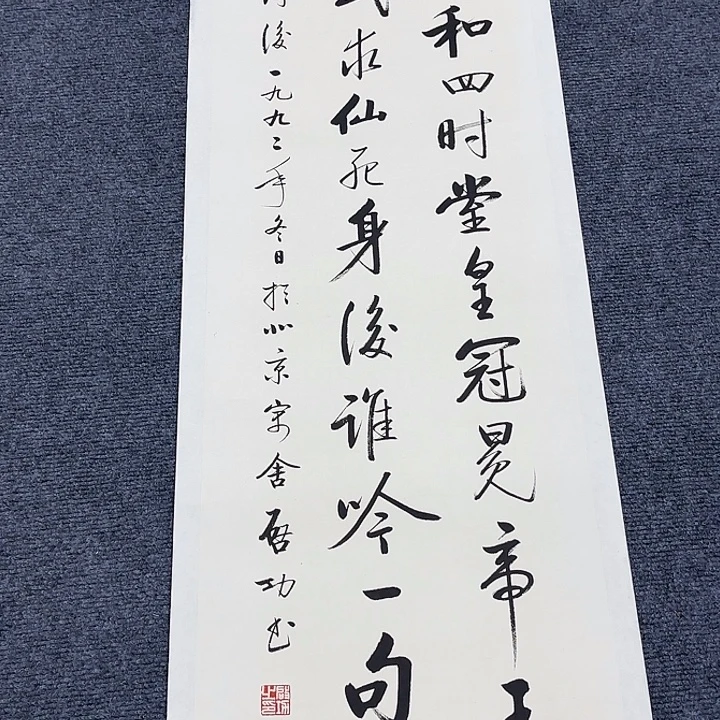 和四时堂皇冠冕帝王
求仙死身後谁吟一句
後一九九二年冬日於北京寓舍启功书
启功之印